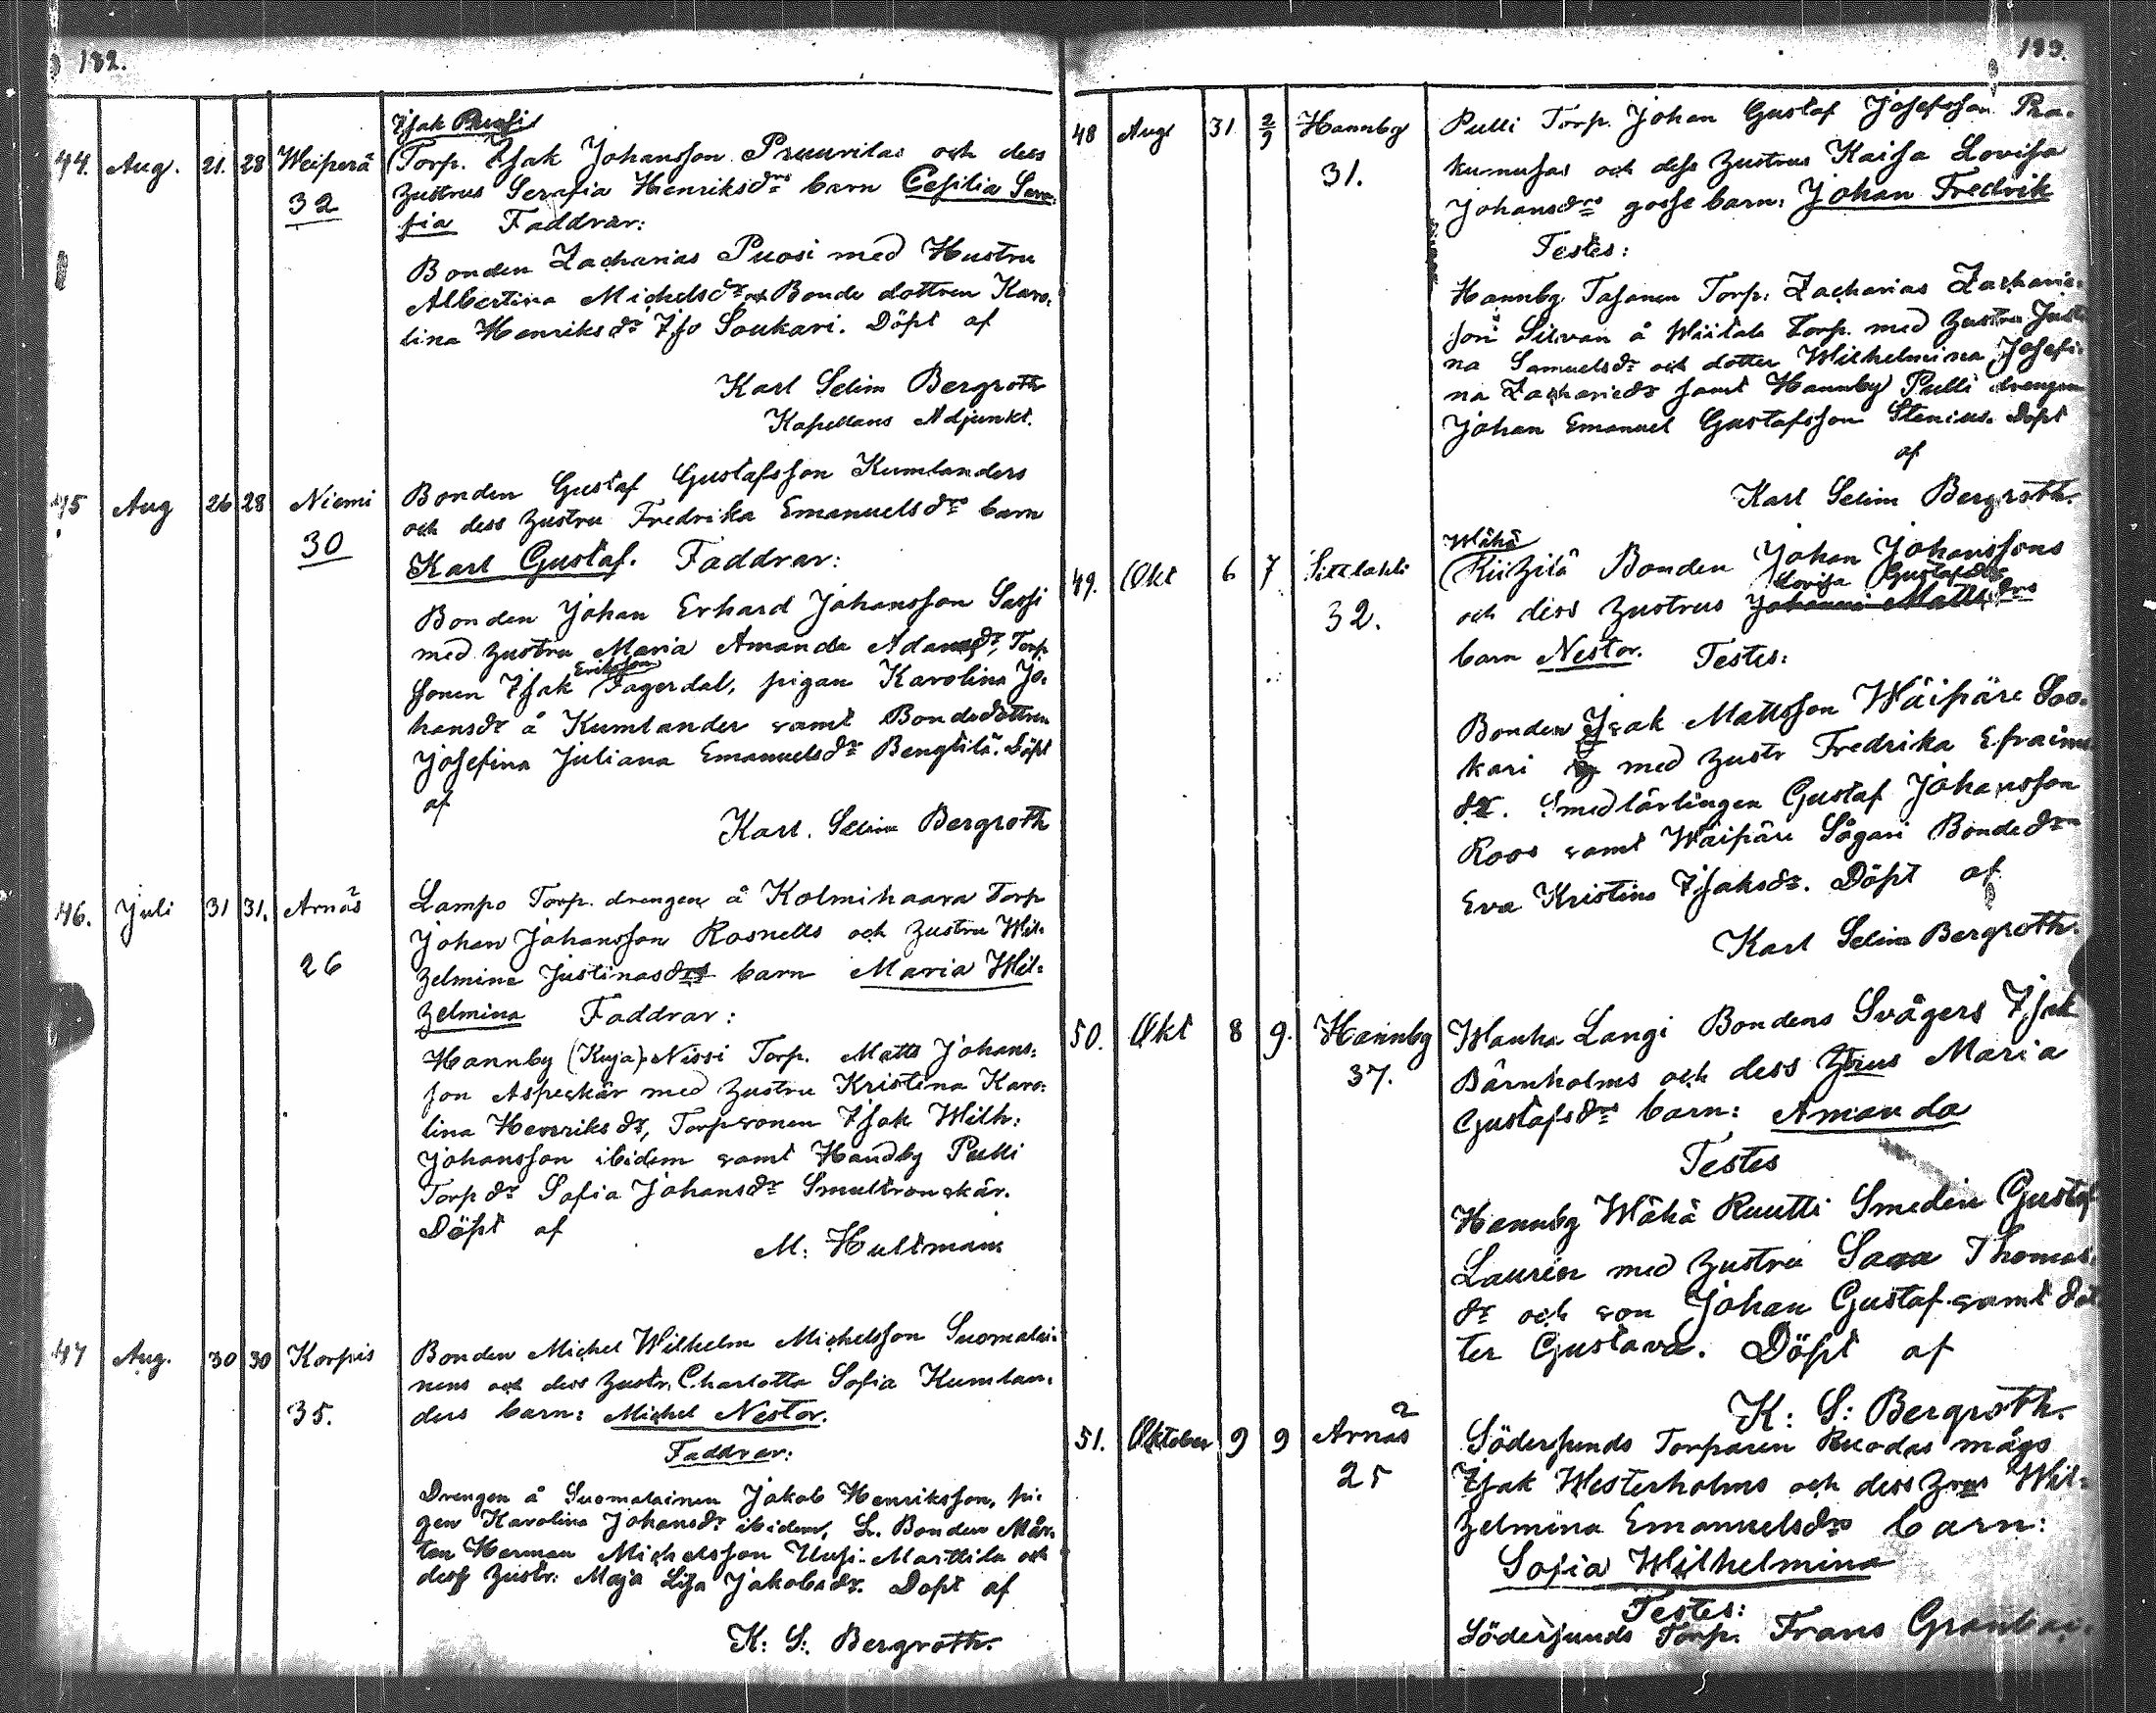 182.
Isak Puosi
44. Aug. 21. 28 Weiperä Torp. Isak Johansson Pruurilas och dess
32 hustrus Serafia Henriksdrs barn Cesilia Sera-
fia Faddrar:
Bonden Zacharias Puosi med Hustru
Albertina Michelsdr och Bonde dottren Karo-
lina Henriksdr Iso Soukari. Döpt af
Karl Selim Bergroth
Kapellans Adjunkt.
45 Aug 26 28 Niemi Bonden Gustaf Gustafsson Kumlanders
och dess hustru Fredrika Emanuelsdrs barn
30 Karl Gustaf. Faddrar:
Bonden Johan Erhard Johansson Sassi
med hustru Maria Amanda Adamsdr, Torp
sonen Isak Eriksson Fagerdal, pigan Karolina Jo-
hansdr å Kumlander samt Bondedottren
Josefina Juliana Emanuelsdr Bengtilä. Döpt
af
Karl. Selim Bergroth
46. Juli 31 31. Arnäs Lampo Torp. drengen å Kolmihaara Torp
Johan Johansson Rosnells och hustru Wil-
26 helmina Justinasdrs barn Maria Wil-
helmina Faddrar:
Hannby (Kuja) Nissi Torp. Matts Johans-
son Aspeskär med hustru Kristina Karo-
lina Henriksdr, Torpsonen Isak Wilh:
Johansson ibidem samt Handby Pulli
Torp dr Sofia Johansdr Smultronskär.
Döpt af
M: Hultman
47 Aug. 30 30 Korpis Bonden Michel Wilhelm Michelsson Suomalai-
nens och dess hustr. Charlotta Sofia Kumlan-
35. ders barn: Michel Nestor.
Faddrar:
Drengen å Suomalainen Jakob Henriksson, pi-
gan Karolina Johansdr ibidem, L. Bonden Mår-
ten Herman Michelsson Uusi-Marttila och
dess hustr: Maja Lisa Jakobsdr. Döpt af
K: S: Bergroth.
183.
48 Aug 31 2/9 Hannby Pulli Torp. Johan Gustaf Josefsson Ra-
31. kumusas och dess hustrus Kaisa Lovisa
Johansdrs gosse barn: Johan Fredrik
Testes:
Hannby Tasanen Torp. Zacharias Zacharias-
son Silvan å Wiitala Torp. med hustru Justi
na Samuelsdr och dotter Wilhelmina Josefi-
na Zachariedr samt Hannby Pulli drengen
Johan Emanuel Gustafsson Stenius. Döpt
af
Karl Selim Bergroth.
Wähä
49. Okt 6 7 Sittlahti Kiihilä Bonden Johan Johanssons
Lovisa Gustafsdrs
32. och dess hustrus Johanna Mattsdrs
barn Nestor. Testes:
Bonden Isak Mattsson Wäipäre Soo-
kari med hustr Fredrika Efraims
dr. Smedlärlingen Gustaf Johansson
Roos samt Wäipäre Sågari Bondedrn
Eva Kristina Isaksdr. Döpt af
Karl Selim Bergroth.
50. Okt 8 9. Hannby Wanha Langi Bondens Svågers Isak
37. Bärnholms och dess hrus Maria
Gustafsdrs barn: Amanda
Testes
Hannby Wähä Ruutti Smeden Gustaf
Lauren med hustru Sara Thomas-
dr och son Johan Gustaf samt dot
ter Gustava. Döpt af
K: S: Bergroth.
51. Oktober 9 9 Arnäs Södersunds Torparen Ruodas mågs
25 Isak Westerholms och dess hrus Wil-
helmina Emanuelsdrs barn:
Sofia Wilhelmina
Testes:
Södersunds Torp. Frans